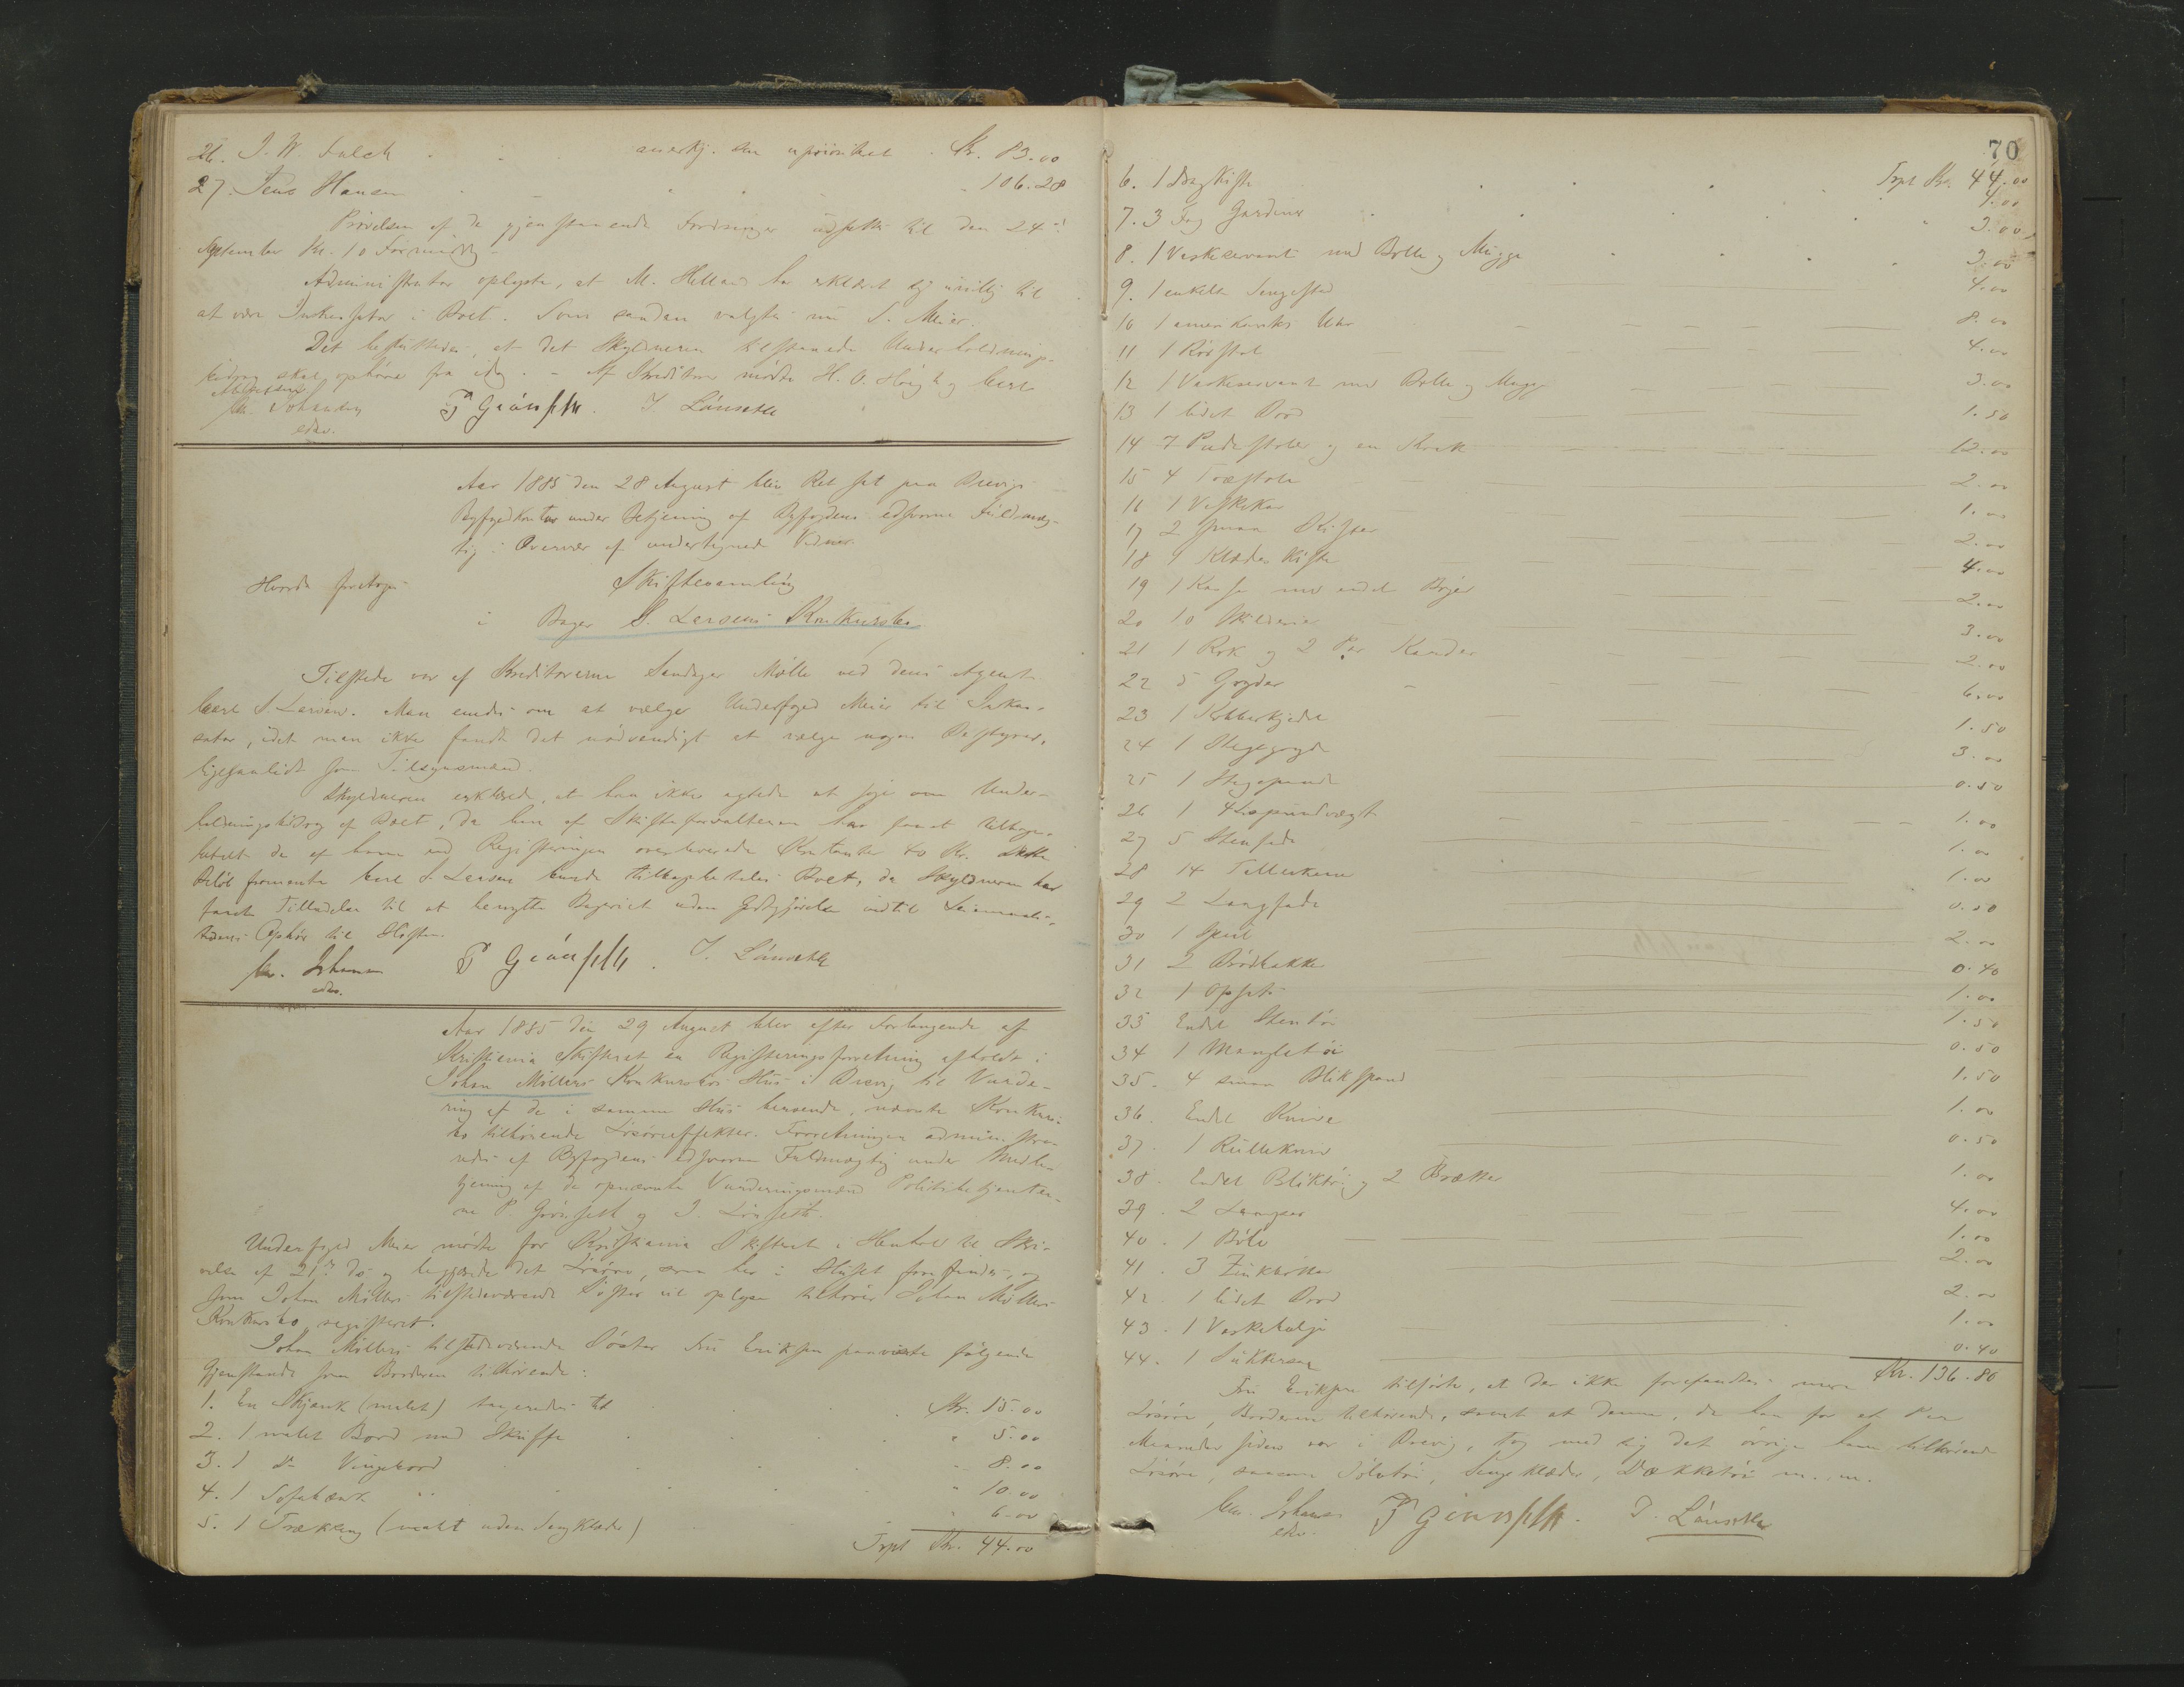 26. J. W. Falch . . anerkj. som uprioritet . Kr. 83.00
27. Jens Hansen - - " - - 106.28
Prøvelsen af de gjenstaaende Fordringer udsattes til den 24de
September Kl. 10 Formiddag.
Administrator oplyste, at M. Helland har erklæret sig uvillig til
at være Inkassator i Boet. Som saadan valgtes nu S. Meier.
Det besluttedes, at det Skyldneren tilstaaede Underholdnings-
bidrag skal ophøre fra idag. - Af Kreditorer mødte H. O. Høegh og Carl
Abrahamsen
Chr. Johansen P Grönseth. J. Lönseth
edsv.
Aar 1885 den 28 August blev Ret sat paa Brevigs
Byfogedkontor under Betjening af Byfogdens edsvorne Fuldmæg-
tig i Overvær af undertegnede Vidner.
Hvorda foretoges Skiftesamling
i Bager S. Larsens Konkursbo.
Tilstede var af Kreditorerne Sandager Mølle ved dens Agent
Carl S. Larsen. Man enedes om at vælge Underfoged Meier til Inkas-
sator, idet man ikke fandt det nødvendigt at vælge nogen Bestyrer,
ligesaalidt som Tilsynsmænd.
Skyldneren erklærede, at han ikke agtede at søge om Under-
holdningsbidrag af Boet, da han af Skifteforvalteren har faaet tilbage-
betalt de af ham ved Registeringen overleverede Kontanter 40 Kr. Dette
Beløb formente Carl S. Larsen burde tilbagebetales Boet, da Skyldneren har
faaet Tilladelse til at benytte Bageriet uden Godtgjørelse indtil Leiemaals-
tidens Ophør til Høsten.
Chr. Johansen P Grönseth. J. Lönseth
edsv.
Aar 1885 den 29 August blev efter Forlangende af
Kristiania Skifteret en Registeringsforretning afholdt i
Johan Møllers Konkursbos Hus i Brevig til Vurde-
ring af de i samme Hus beroende, nævnte Konkurs-
bo tilhørende Løsøreeffekter. Forretningen administre-
redes af Byfogdens edsvorne Fuldmægtig under Medbe-
tjening af de opnævnte Vurderingsmænd Politibetjente-
ne P Grönseth og J. Lönseth.
Underfoged Meier mødte for Kristiania Skifteret i Henhold til Skri-
velse af 21de ds og begjærede det Løsøre, som her i Huset forefindes, og
som Johan Møllers tilstedeværende Søster vil oplyse tilhører Johan Møllers
Konkursbo, registeret.
Johan Møllers tilstedeværende Søster Fru Eriksen paaviste følgende
Gjenstande som Boderen tilhørende:
1. En Skjænk (malet) taxeredes til . . . Kr. 15.00
2. 1 malet Bord med Skuffe . . . " 5.00
3. 1 do Vingebord . . . " 8.00
4. 1 Sofabænk . . . " 10.00
5. 1 Trækseng (malt uden Sengklæder) . . " 6.00
Trpt Kr. 44.00
70
Trpt Kr. 44.00
6. 1 Dragkiste . . . 4.00
7. 3 Fag Gardiner . . . " 3.00
8. 1 Vaskeservant med Bolle og Mugge . . . 3.00
9. 1 enkelt Sengested 4.00
10 1 amerikansk Uhr 8.00
11 1 Rørstol 4.00
12 1 Vaskeservant med Bolle og Mugge 3.00
13 1 lidet Bord 1.50
14 7 Pudestoler og en Krak 12.00
15 4 Træstole 2.00
16 1 Vaskekar 1.00
17 2 smaa Kister 2.00
18 1 Klædes Kiste 4.00
19 1 Kasse med endel Bøger 2.00
20 10 Skilderier 3.00
21 1 Rok og 2 Par Karder 2.00
22 5 Gryder 6.00
23 1 Kobberkjedel 1.50
24 1 Stegegryde 3.00
25 1 Stegepande 0.50
26 1 4 Lispundvægt 1.00
27 5 Stenfade 1.00
28 14 Tallerkener 1.00
29 2 Langfade 0.50
30 1 Speil 2.00
31 2 Brødbakker 0.40
32 1 Opsats 1.00
33 Endel Stentøi 1.50
34 1 Mangletøi 0.50
35. 4 smaa Blikspand 1.50
36 Endel Knive 1.00
37. 1 Rullekniv 0.50
38. Endel Bliktøi og 2 Brætter 1.00
39. 2 Lamper 4.00
40. 1 Bøle 1.00
41. 3 Zinkbøtter 2.00
42. 1 lidet Bord 2.00
43. 1 Vaskebalje 1.00
44. 1 Sukkersax 0.40
Kr. 136.80
Fru Eriksen tilføiede, at der ikke forefandtes mere
Løsøre, Boderen tilhørende, samt at denne, da han for et Par
Maaneder siden var i Brevig, tog med sig det øvrige ham tilhørende
Løsøre, saasom Sølvtøi, Sengeklæder, Dækketøi m. m.
Chr. Johansen P Grönseth. J. Lönseth
edsv.